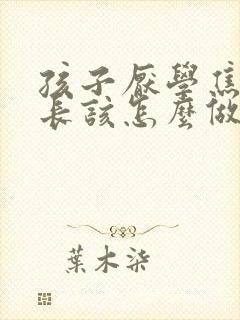 孩子厭學焦
長該怎麼做
葉木染